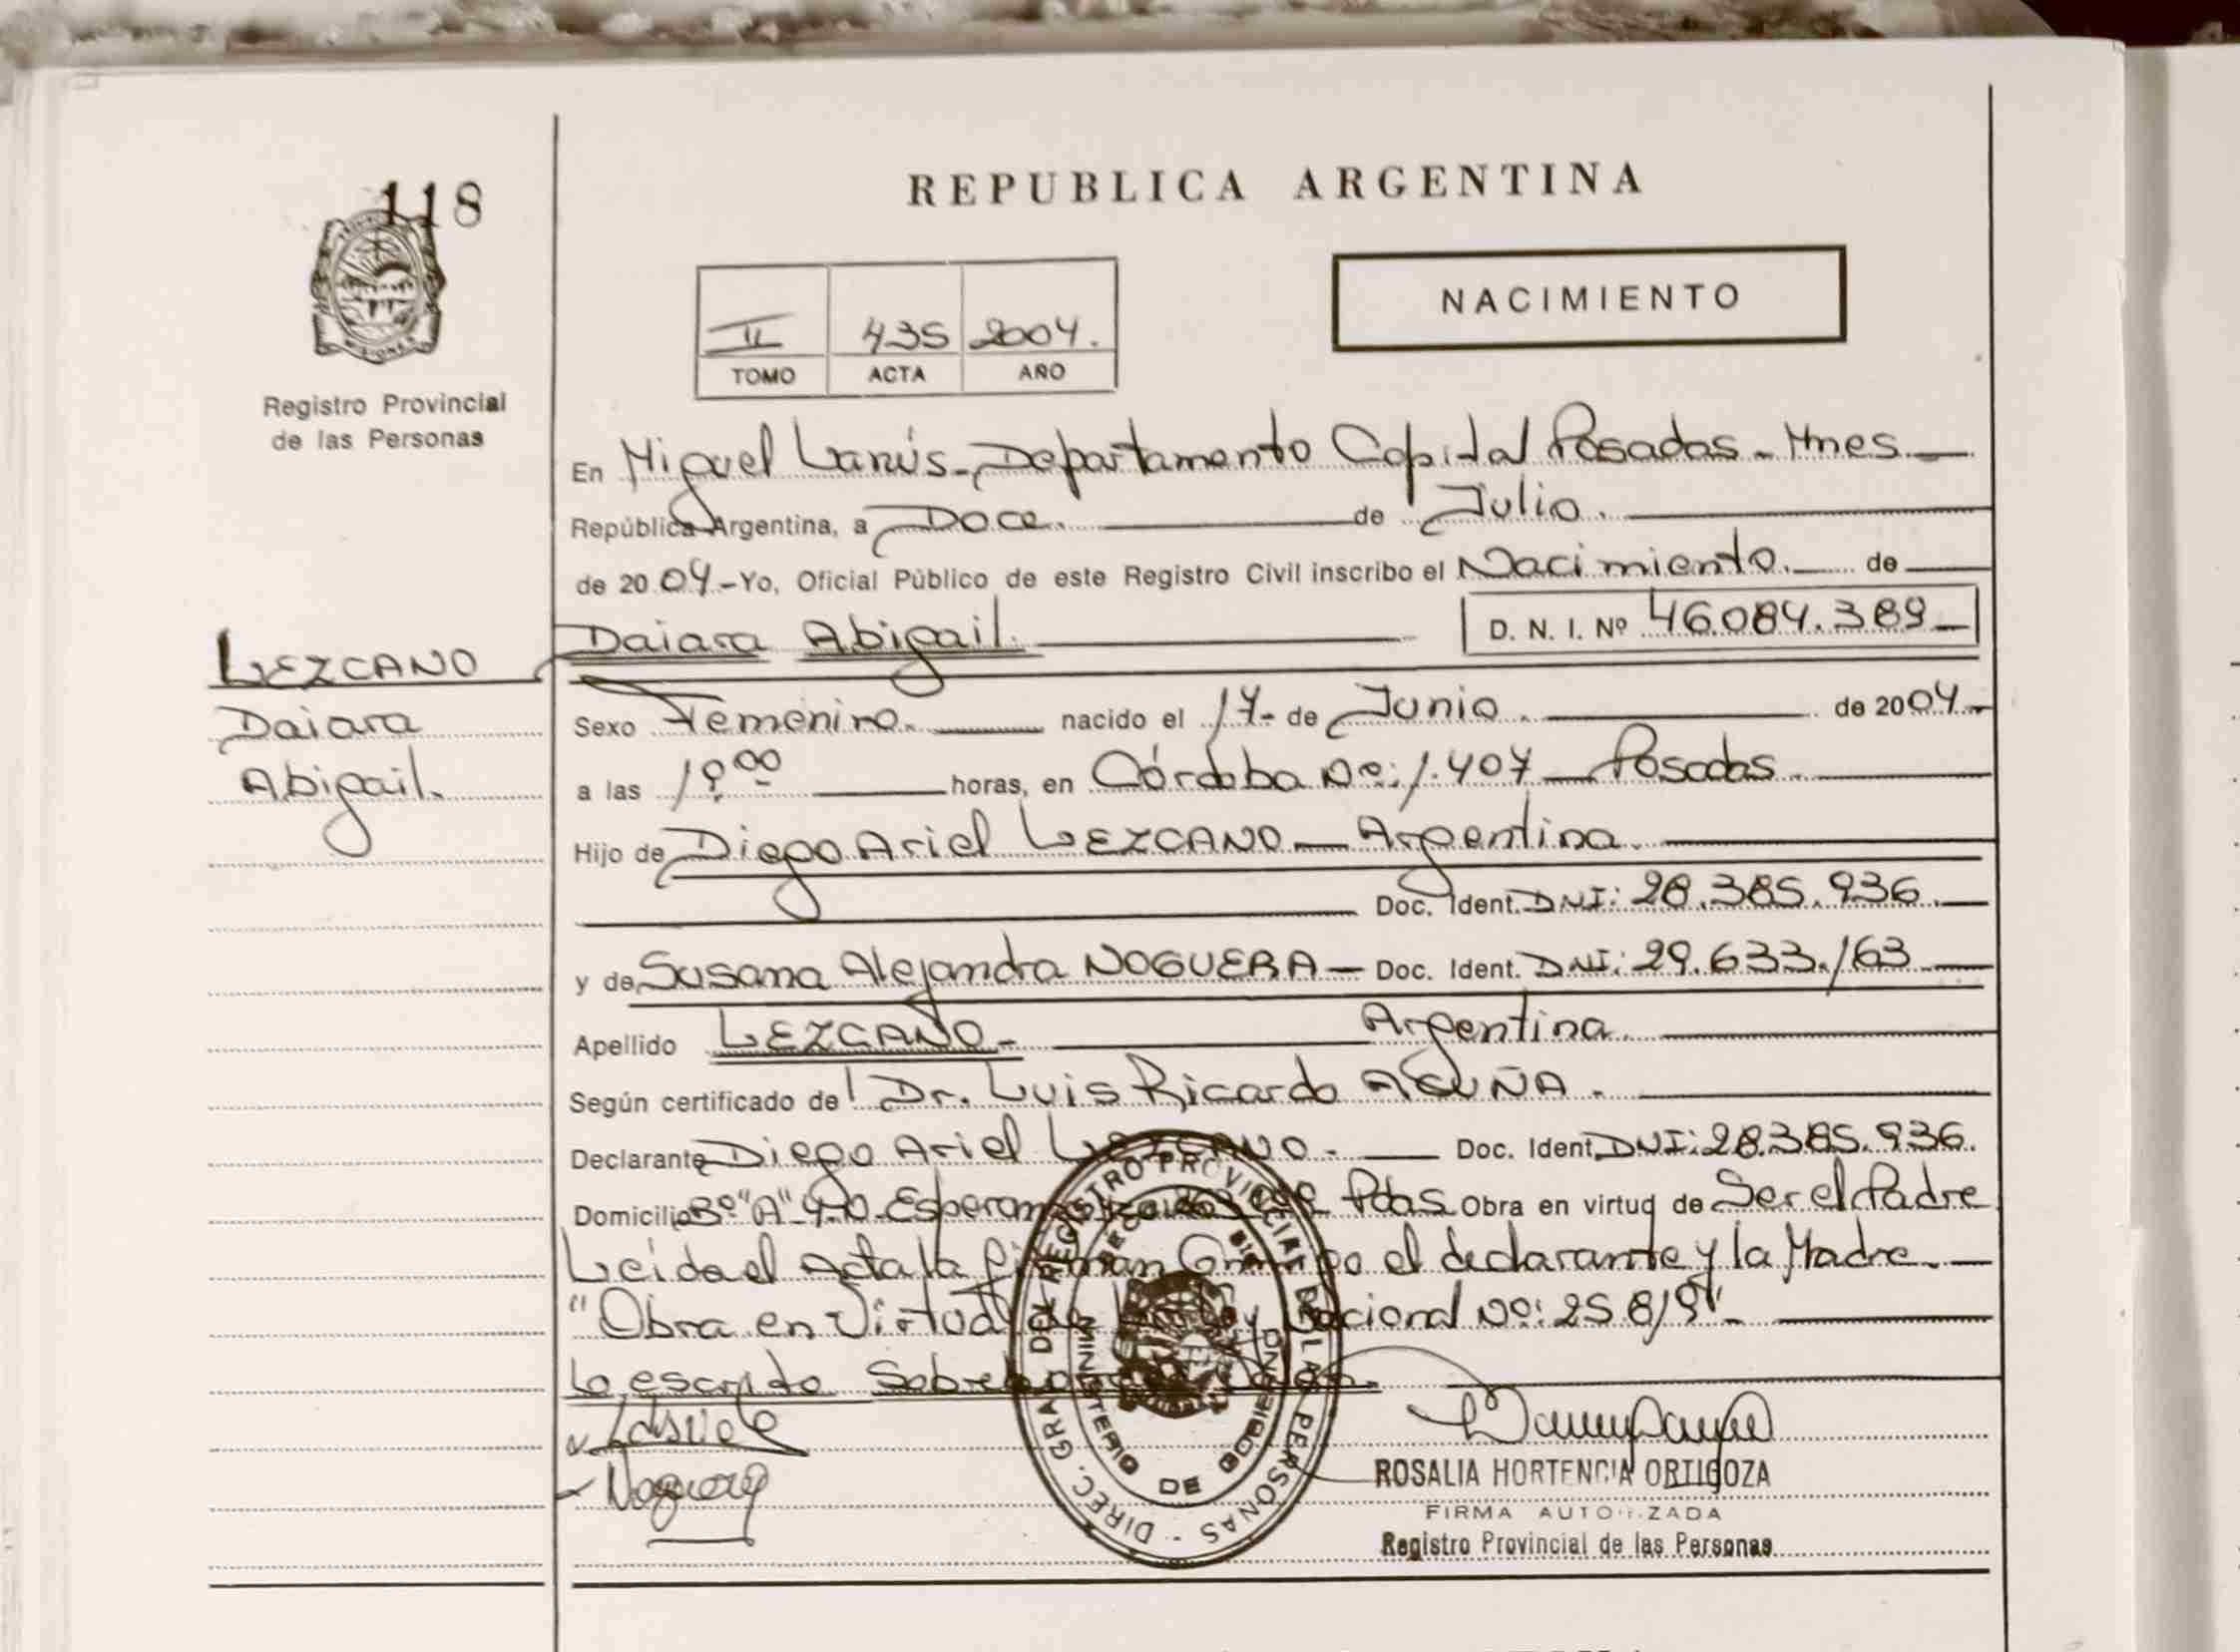 118
Registro Provincial
de las Personas
LEZCANO
Daiara
Abigail.
REPUBLICA ARGENTINA
NACIMIENTO
II 435 2004.
TOMO ACTA AÑO
En Miguel Lanús - Departamento Capital Posadas - Mnes
República Argentina, a Doce. de Julio.
de 2004 - Yo, Oficial Público de este Registro Civil inscribo el Nacimiento. de
Daiara Abigail. D. N. I. Nº 46.084.389
Sexo Femenino. nacido el 17 - de Junio. de 2004.
a las 19:00 horas, en Córdoba Nº: 1.407 - Posadas.
Hijo de Diego Ariel LEZCANO - Argentina.
Doc. Ident. DNI: 28.385.936.
y de Susana Alejandra NOGUERA - Doc. Ident. DNI: 29.633.163
Apellido LEZCANO - Argentina.
Según certificado de Dr. Luis Ricardo ACUÑA.
Declarante Diego Ariel LEZCANO. - Doc. Ident. DNI: 28.385.936.
Domicilio Pdas Obra en virtud de Ser el Padre
Leída el Acta la firman Conmigo el declarante y la Madre. -
"Obra en Virtud de la Ley Nacional Nº: 25.819" -
Lo escrito Vale.
Noguera
DIREC. GRAL. DEL REGISTRO PROVINCIAL DE LAS PERSONAS -
MINISTERIO DE GOBIERNO
ROSALIA HORTENCIA ORTIGOZA
FIRMA AUTORIZADA
Registro Provincial de las Personas